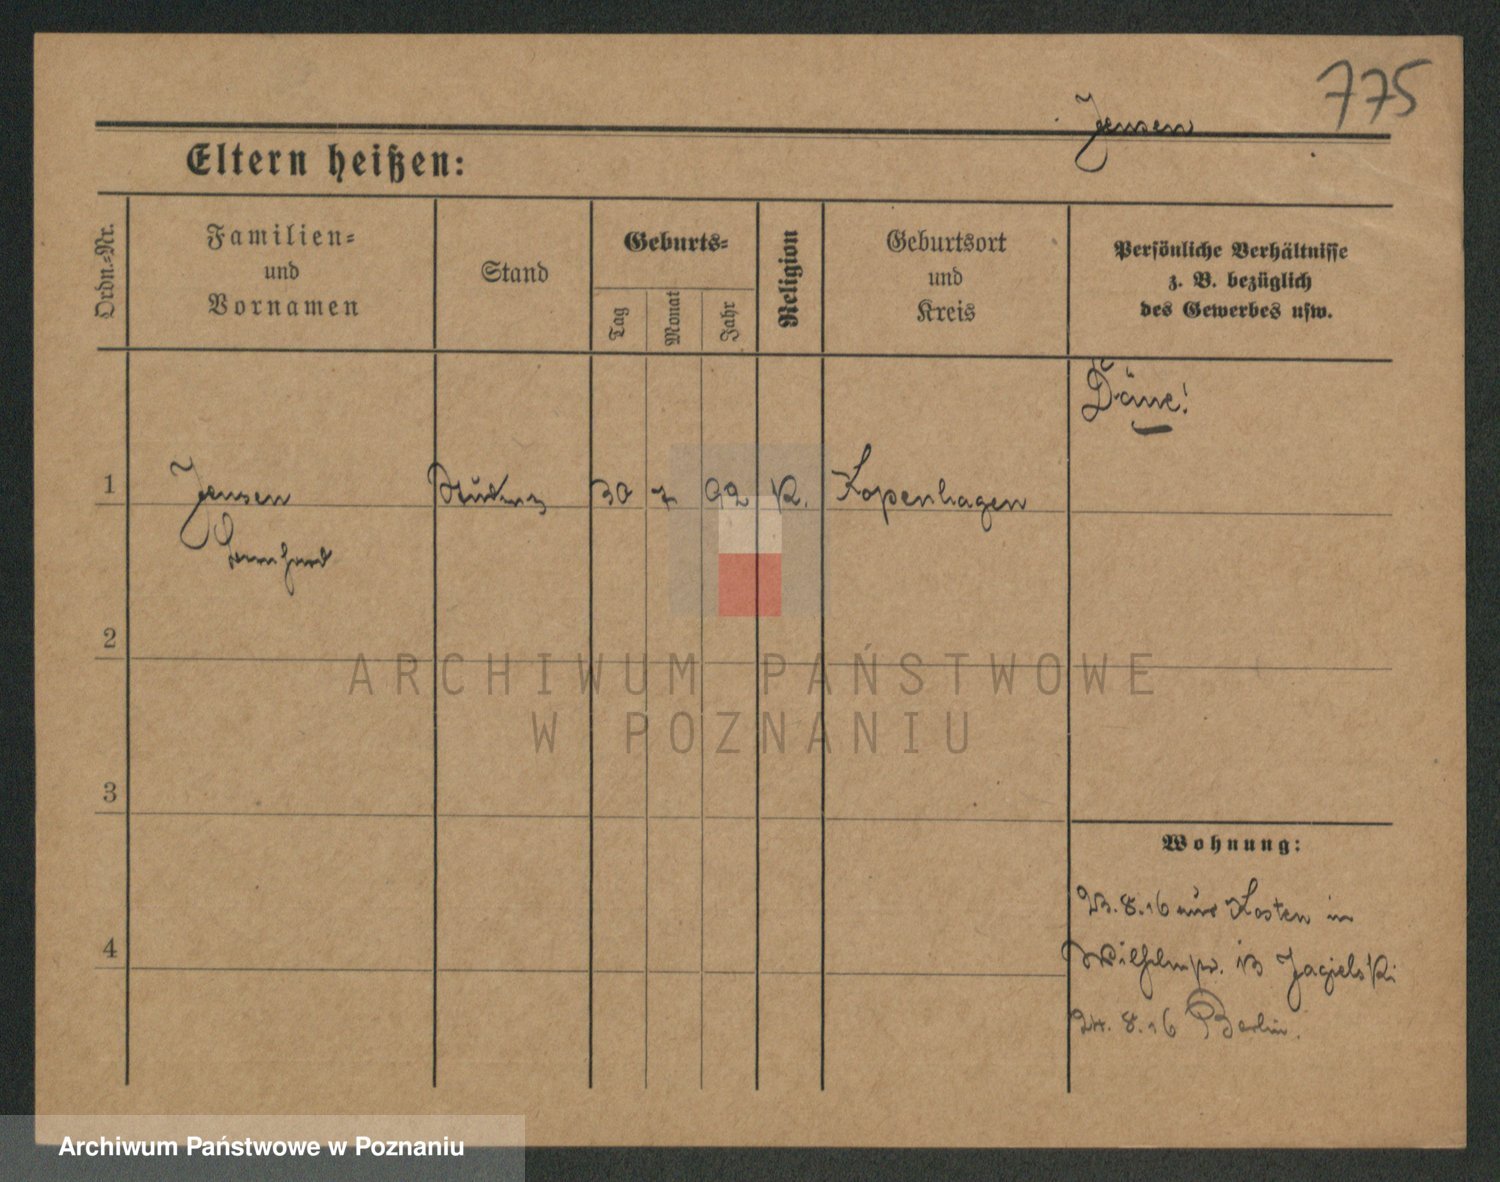 775
Jensen
Eltern heißen:
Ordn.-Nr.
Familien-
und
Vornamen
Stand
Geburts-
Tag
Monat
Jahr
Religion
Geburtsort
und
Kreis
Persönliche Verhältnisse
z. B. bezüglich
des Gewerbes usw.
Däne!
1
Jensen
30 7 92 K. Kopenhagen
Bernhard
2
ARCHIWUM PAŃSTWOWE
W POZNANIU
3
Wohnung:
23.8.16 aus Kosten in
Wilhelmpl. 13 Jagielski
4
24.8.16 Berlin.
Archiwum Państwowe w Poznaniu